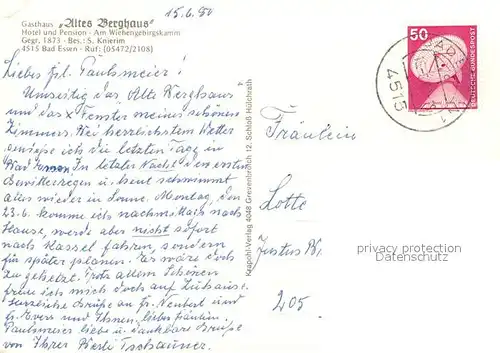 15.6.80
Gasthaus „Altes Berghaus"
Hotel und Pension · Am Wiehengebirgskamm
Gegr. 1873 · Bes.: S. Knierim
4515 Bad Essen · Ruf: (05472/2108)
Liebes Frl. Paulsmeier!
Umseitig das „Alte Berghaus"
und das x Fenster meines schönen
Zimmers. Bei herrlichstem Wetter
genieße ich die letzten Tage in
Bad Essen. In letzter Nacht den ersten
Gewitterregen u. heut schwimmt
alles wieder in Sonne. Montag, den
23.6. komme ich nachmittags nach
Hause, werde aber nicht sofort
nach Kassel fahren, sondern
für später planen. Es wäre doch
zu gehetzt. Trotz allem Schönen
freue ich mich doch auf Zuhause.
Herzliche Grüße an Fr. Neubert und
Fr. Evers und Ihnen, liebes Fräulein
Paulsmeier liebe u. dankbare Grüße
von Ihrer Werli
Krapohl-Verlag 4048 Grevenbroich 12, Schloß Hülchrath
50
DEUTSCHE BUNDESPOST
4515
Fräulein
Lotte
Justus
205
privates Angebot von
www.ansichtskarten-center.de